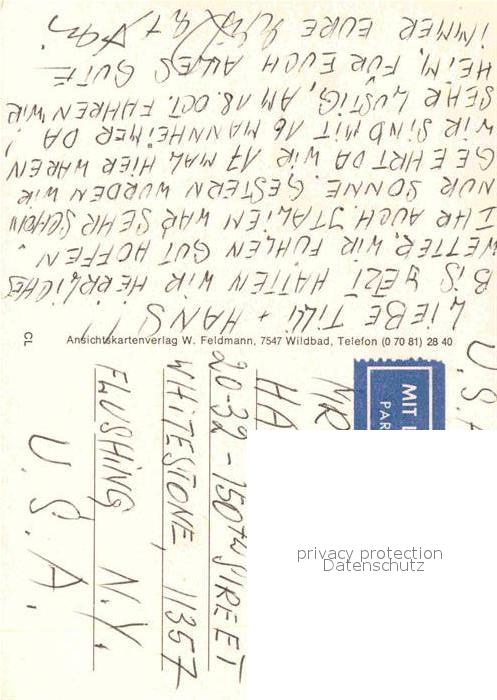 LIEBE TILLI + HANS!
BIS YEZT HATTEN WIR HERRLICHES
WETTER, WIR FÜHLEN GUT HOFFEN
IHR AUCH. ITALIEN WAR SEHR SCHÖN
NUR SONNE. GESTERN WURDEN WIR
GEEHRT DA WIR 17 MAL HIER WAREN
WIR SIND MIT 16 MANNHEIMER DA
SEHR LUSTIG, AM 18. OCT. FAHREN WIR
HEIM, FÜR EUCH ALLES GUTE
IMMER EURE
Ansichtskartenverlag W. Feldmann, 7547 Wildbad, Telefon (0 70 81) 28 40
CL
MIT
PAR
U.S.A
MR
HA
20-32 - 150TH STREET
WHITESTONE, 11357
FLUSHING N.Y.
U.S.A.
privacy protection
Datenschutz